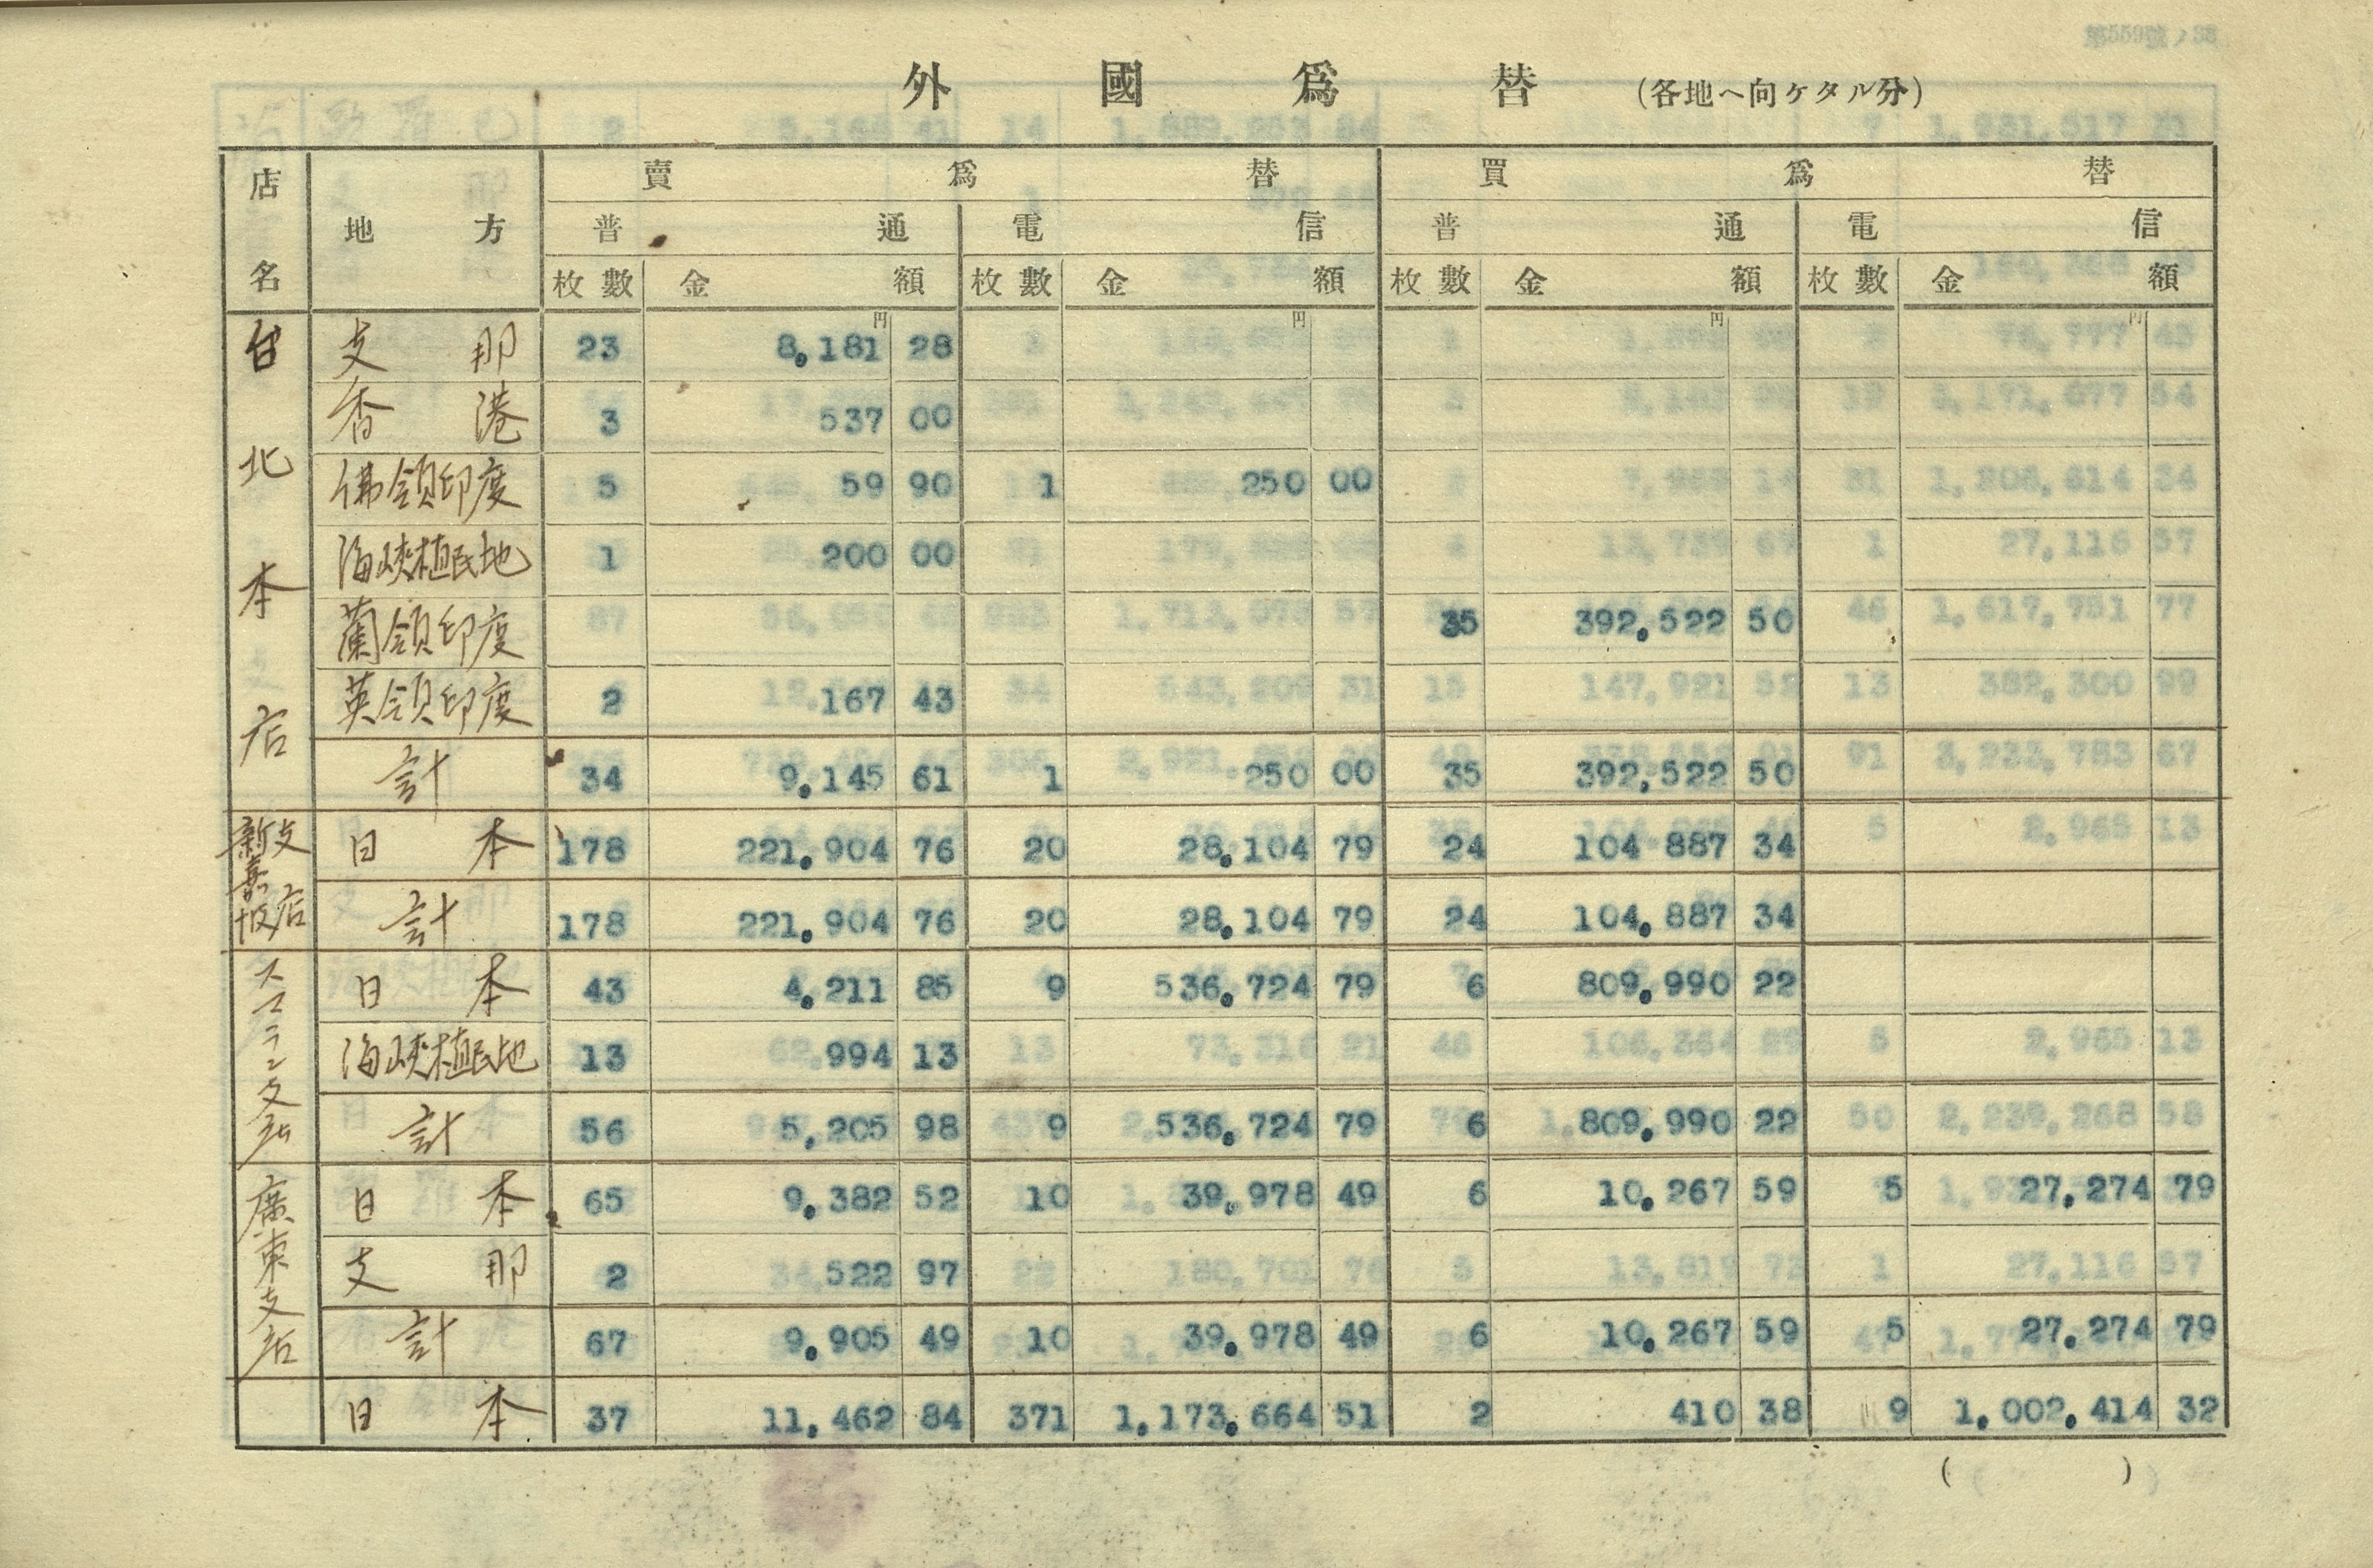 外國爲替 (各地ヘ向ケタル分)
店名 地方 賣爲替 買爲替
普通 電信 普通 電信
枚數 金額 枚數 金額 枚數 金額 枚數 金額
円 円 円 円
台北本店 支那 23 8,181 28
香港 3 537 00
佛領印度 5 59 90 1 250 00
海峽植民地 1 200 00
蘭領印度 35 392,522 50
英領印度 2 167 43
計 34 9,145 61 1 250 00 35 392,522 50
新嘉坡支店 日本 178 221,904 76 20 28,104 79 24 104 887 34
計 178 221,904 76 20 28,104 79 24 104,887 34
スマラン支店 日本 43 4,211 85 9 536,724 79 6 809,990 22
海峽植民地 13 994 13
計 56 5,205 98 9 536,724 79 6 809,990 22
廣東支店 日本 65 9,382 52 10 39,978 49 6 10,267 59 5 27,274 79
支那 2 522 97
計 67 9,905 49 10 39,978 49 6 10,267 59 5 27,274 79
日本 37 11,462 84 371 1,173,664 51 2 410 38 9 1,002,414 32
( )